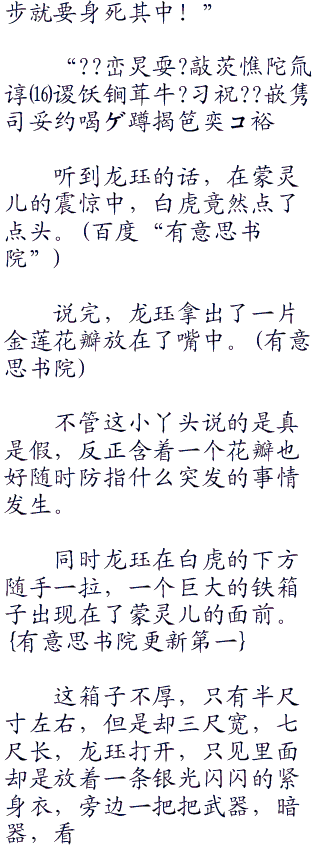 步就要身死其中！”
“??峦炅耍?敲茨憔陀氚
谆⒃谡饫锏茸牛?习祝??嵌隽
司妥约喝ゲ蹲揭笆奕コ裕
听到龙珏的话，在蒙灵
儿的震惊中，白虎竟然点了
点头。(百度“有意思书
院”)
说完，龙珏拿出了一片
金莲花瓣放在了嘴中。(有意
思书院)
不管这小丫头说的是真
是假，反正含着一个花瓣也
好随时防指什么突发的事情
发生。
同时龙珏在白虎的下方
随手一拉，一个巨大的铁箱
子出现在了蒙灵儿的面前。
{有意思书院更新第一}
这箱子不厚，只有半尺
寸左右，但是却三尺宽，七
尺长，龙珏打开，只见里面
却是放着一条银光闪闪的紧
身衣，旁边一把把武器，暗
器，看